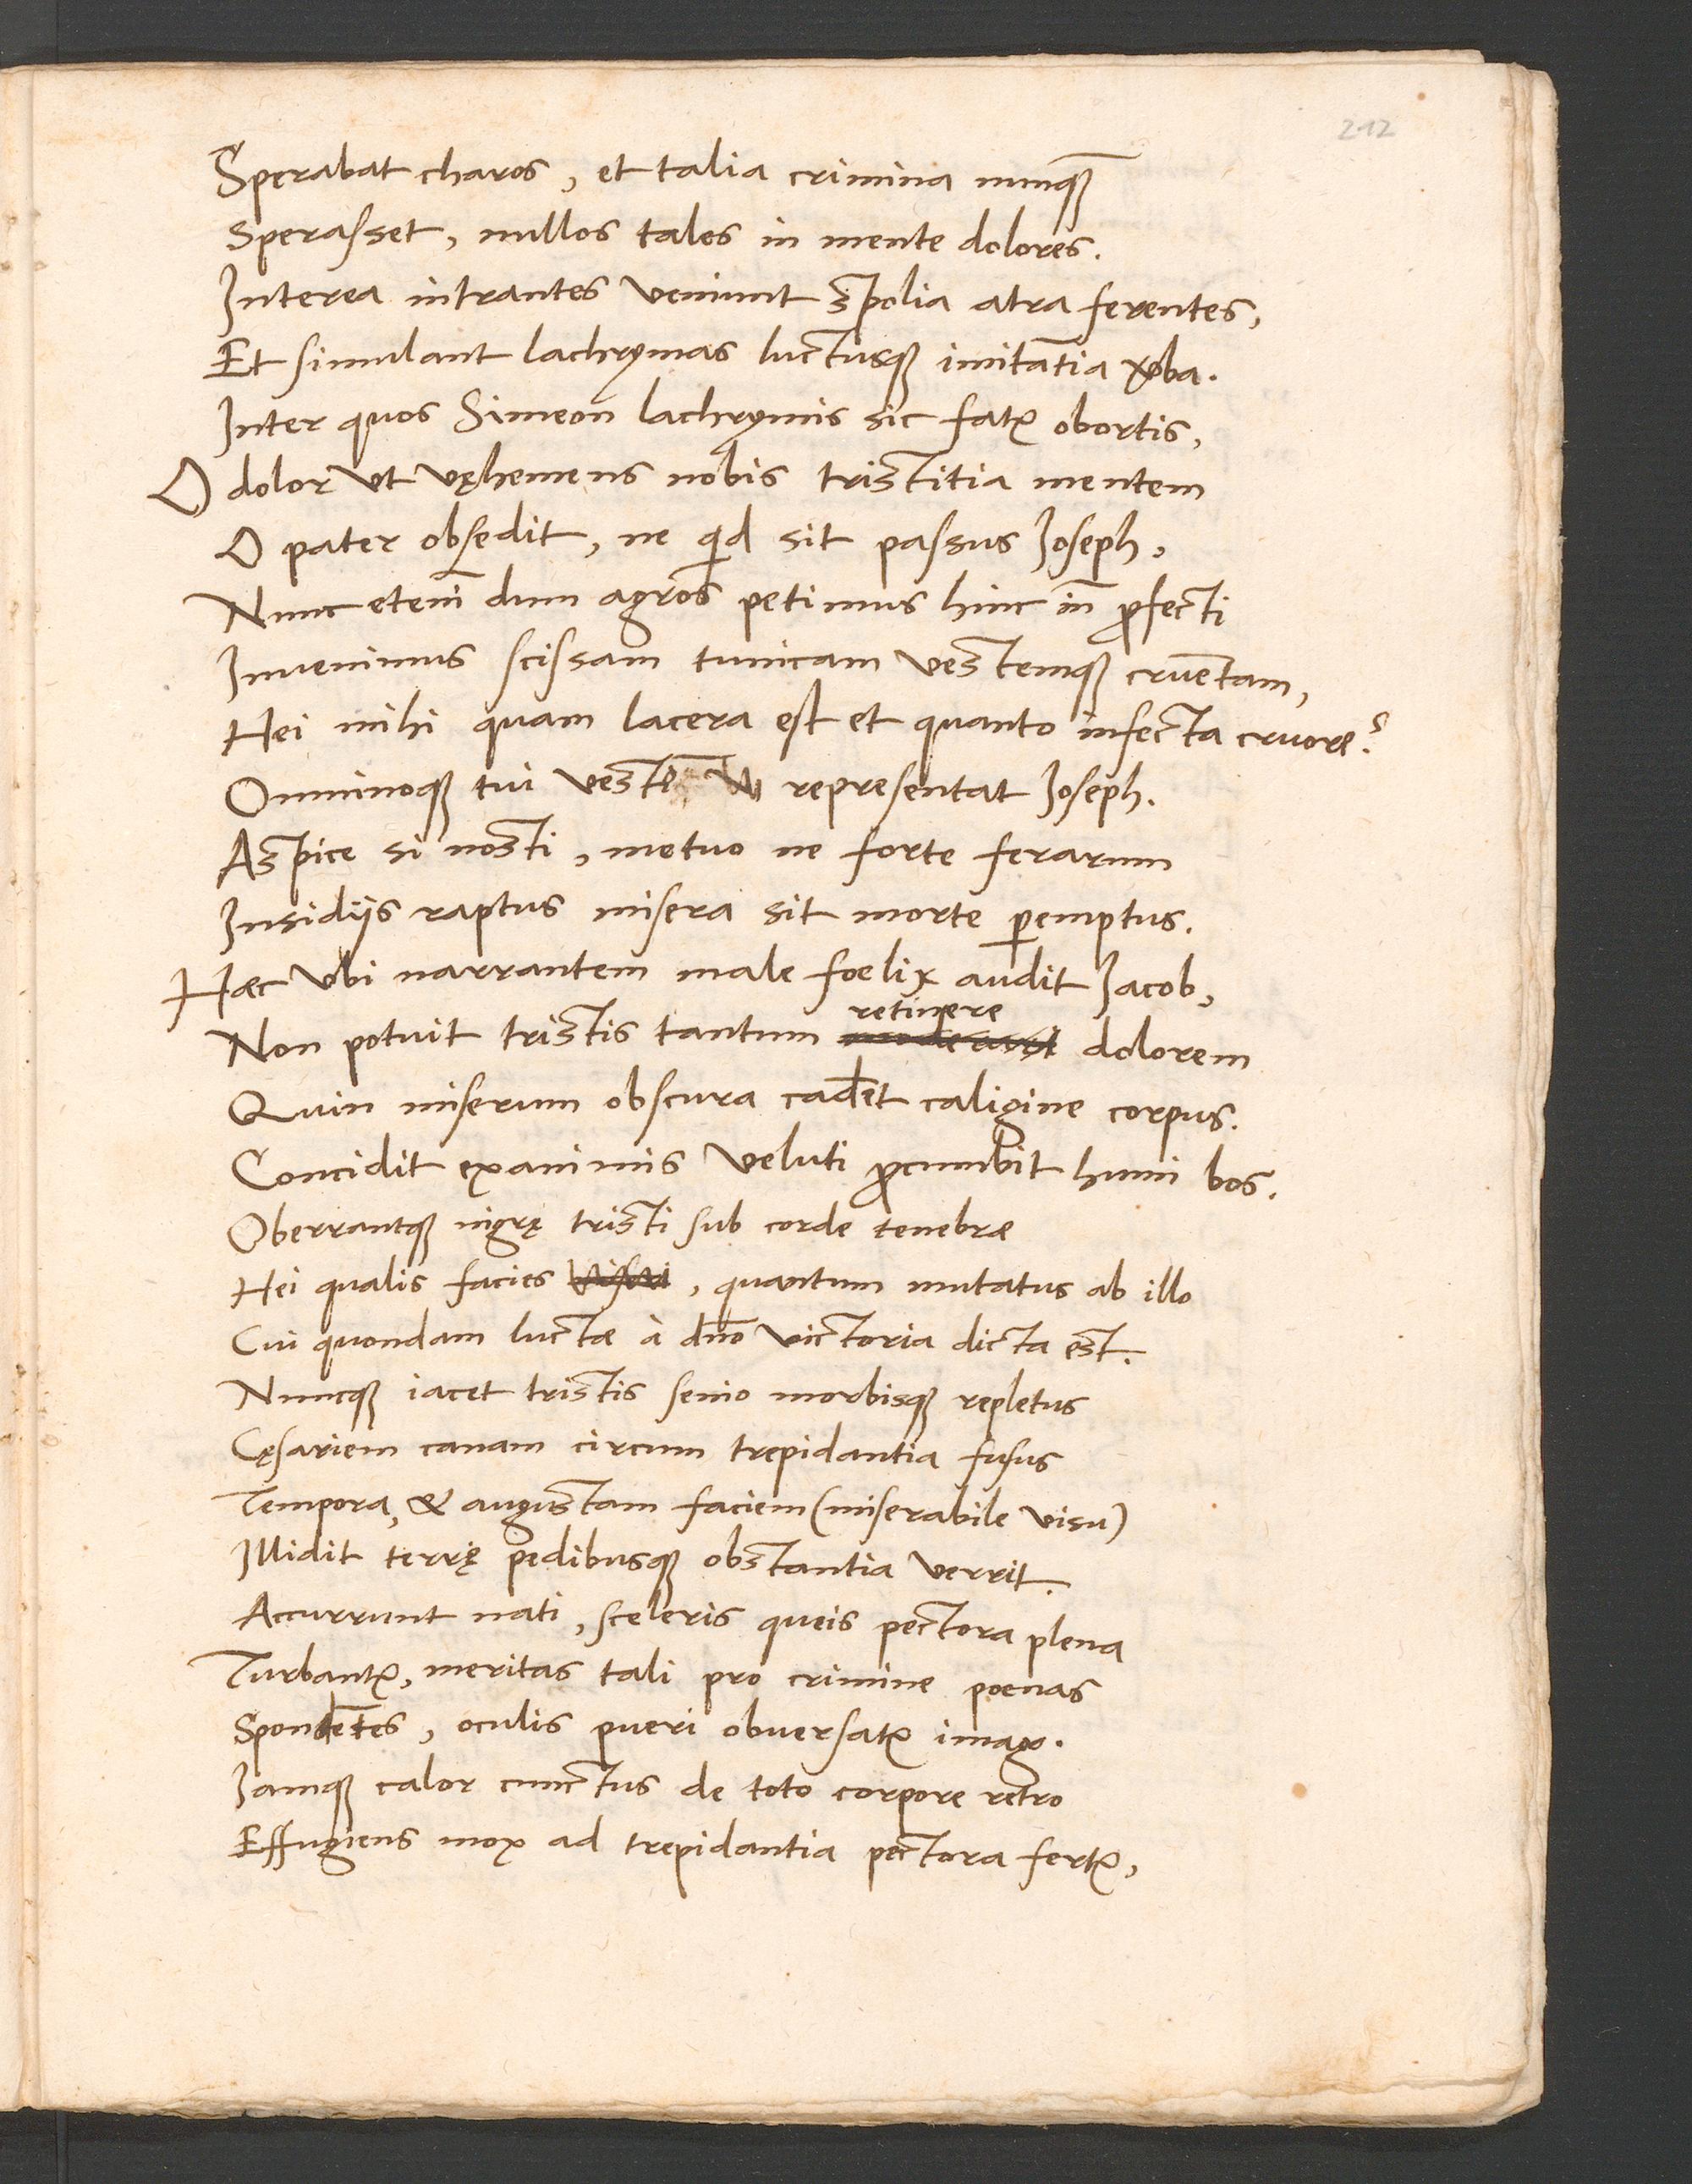 212
Sperabat charos, et talia crimina nunq̃
Sperasset, nullos tales in mente dolores.
Interea intrantes veniunt spolia atra ferentes,
Et simulant lachrymas luctusq̃ imitātia ṽba.
Inter quos Simeon lachrymis sic fat᷑ obortis,
O dolor ut vęhemens nobis tristitia mentem
O pater obsedit, ne qid sit passus Joseph,
Nunc etenī dum agros petimus hinc in ꝓfecti
Invenimus scissam tunicam vestemq̃ cruētam,
Hei mihi quam lacera est et quanto infecta cruore?
Omninoq̃ tui vestē representat Joseph.
Aspice si nosti, metuo ne forte ferarum
Insidijs raptus misera sit morte ꝑemptus.
Haec ubi narrantem male foelix audit Jacob,
retinere
Non potuit tristis tantum dolorem
Quin miserum obscura cadēt caligine corpus.
Concidit exanimis veluti ꝓcumbit humi bos.
Oberrantq̃ nigrę tristi sub corde tenebrae
Hei qualis facies, quantum mutatus ab illo
Cui quondam luctae à dn̄o victoria dicta est.
Nuncq̃ iacet tristis senio morbisq̃ repletus
Cęsariem canam circum trepidantia fusus
Tempora, & augustam faciem (miserabile visu)
Illidit terrę pedibusq̃ obstantia verrit.
Accurrunt nati, sceleris queis pectora plena
Turbant᷑, meritas tali pro crimine poenas
Spondētes, oculis pueri obversat᷑ imago.
Jamq̃ calor cunctus de toto corpore retro
Effugiens mox ad trepidantia pectora fert᷑,